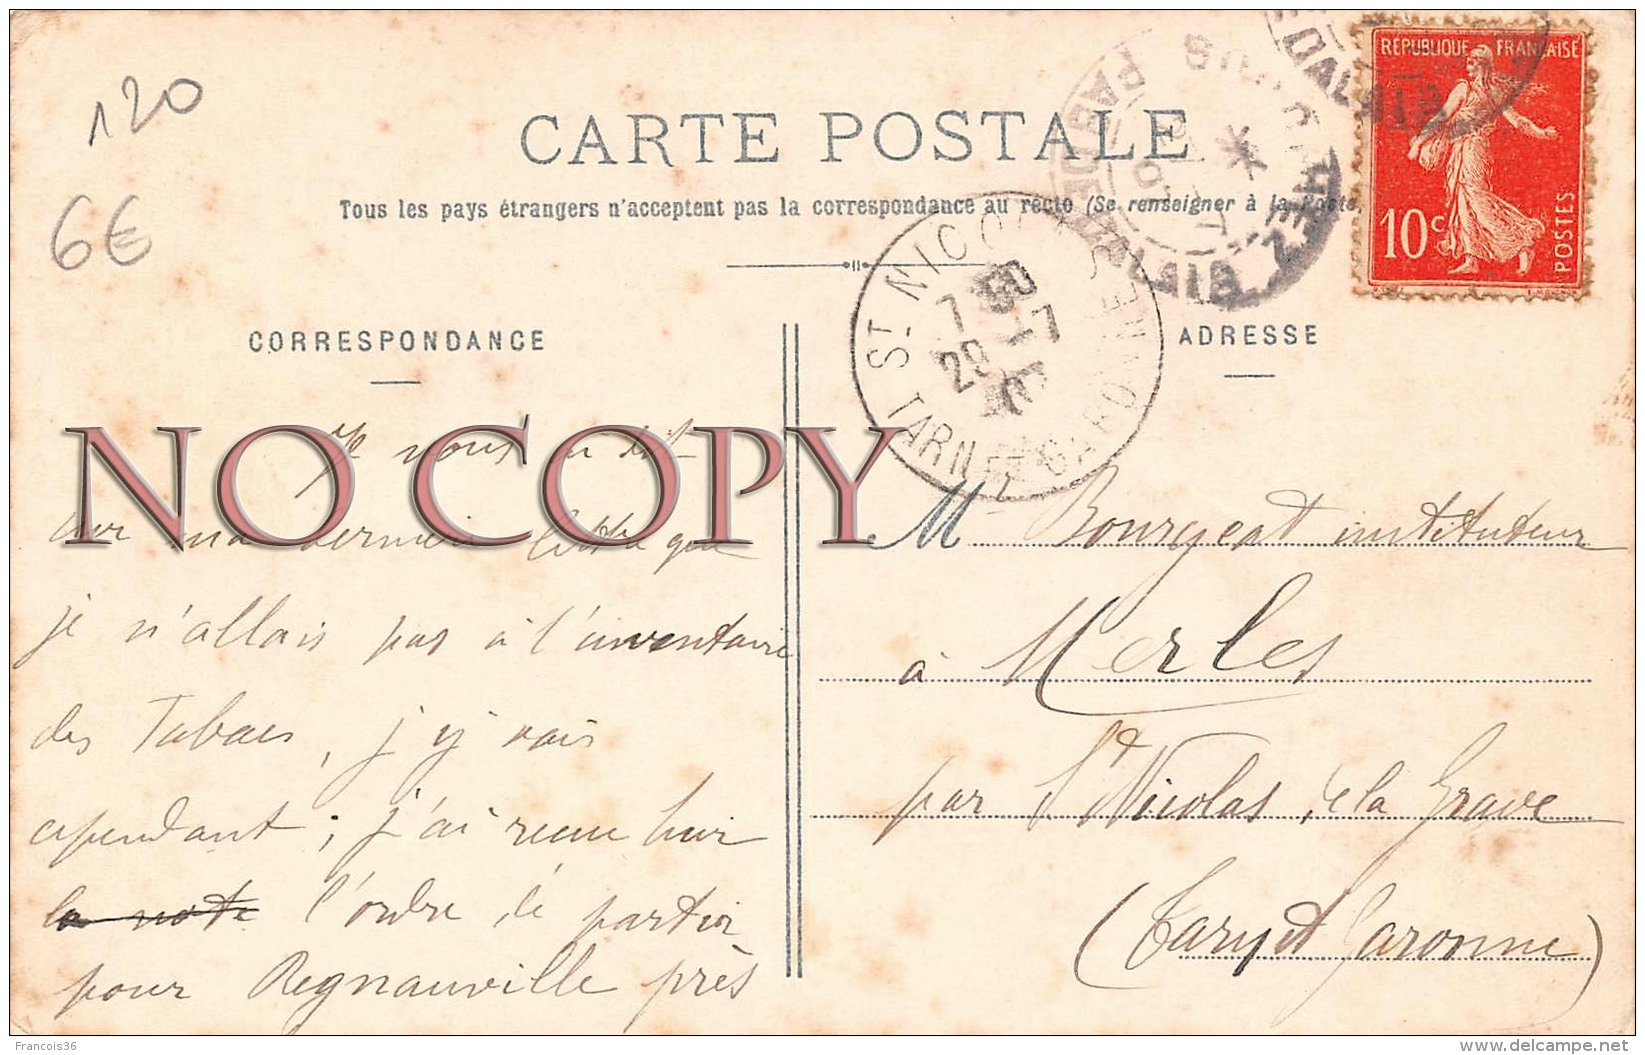 120
6€
CARTE POSTALE
Tous les pays étrangers n'acceptent pas la correspondance au recto (Se renseigner à la Poste
RÉPUBLIQUE FRANÇAISE
10c
POSTES
PAS DE CALAIS
ST NICOLAS
7 30
29 -7
TARN ET GARONNE
CORRESPONDANCE
ADRESSE
NO COPY
Je vous ai dit
sur ma dernière lettre que
je n'allais pas à l'inventaire
des Tabacs, j'y vais
cependant; j'ai reçu hier
la note l'ordre de partir
pour Regnauville près
M Bourgeat instituteur
à Merles
par St Nicolas de la Grave
(Tarn et Garonne)
Francois36
www.delcampe.net